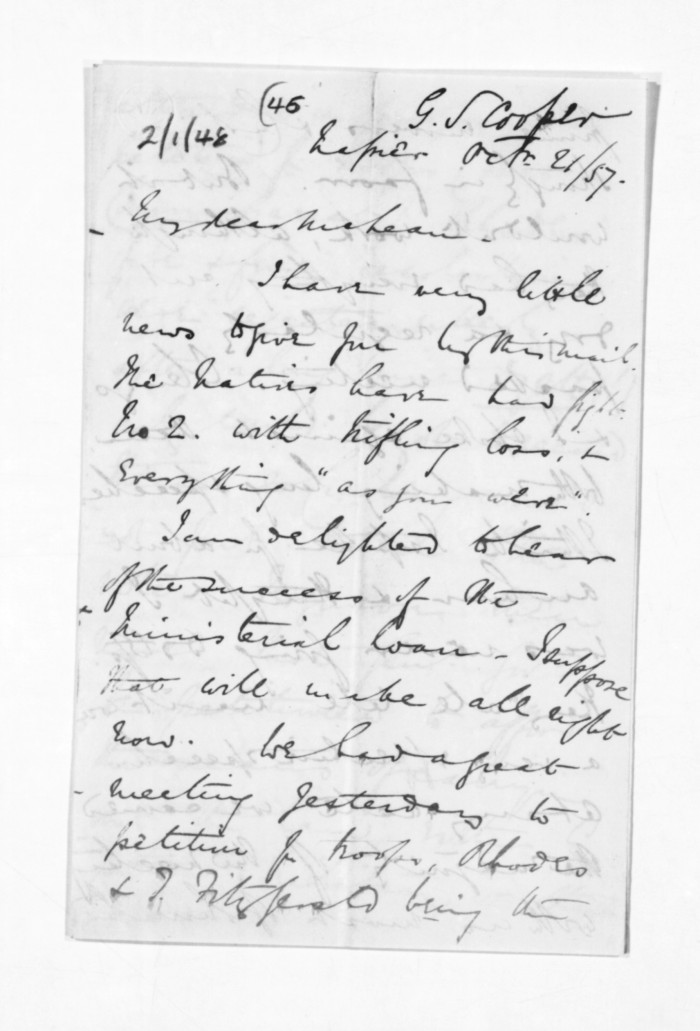 (45
G. S. Cooper
2/1/48
Napier Octr. 21/57.
My dear McLean -
I have very little
news to give you by this mail.
The Natives have had fight
No 2. with trifling loss, &
everything "as you were".
I am delighted to hear
of the success of the
Ministerial loan - I suppose
that will make all right
now. We had a great
meeting yesterday to
petition for troops, Rhodes
& T. Fitzgerald being the